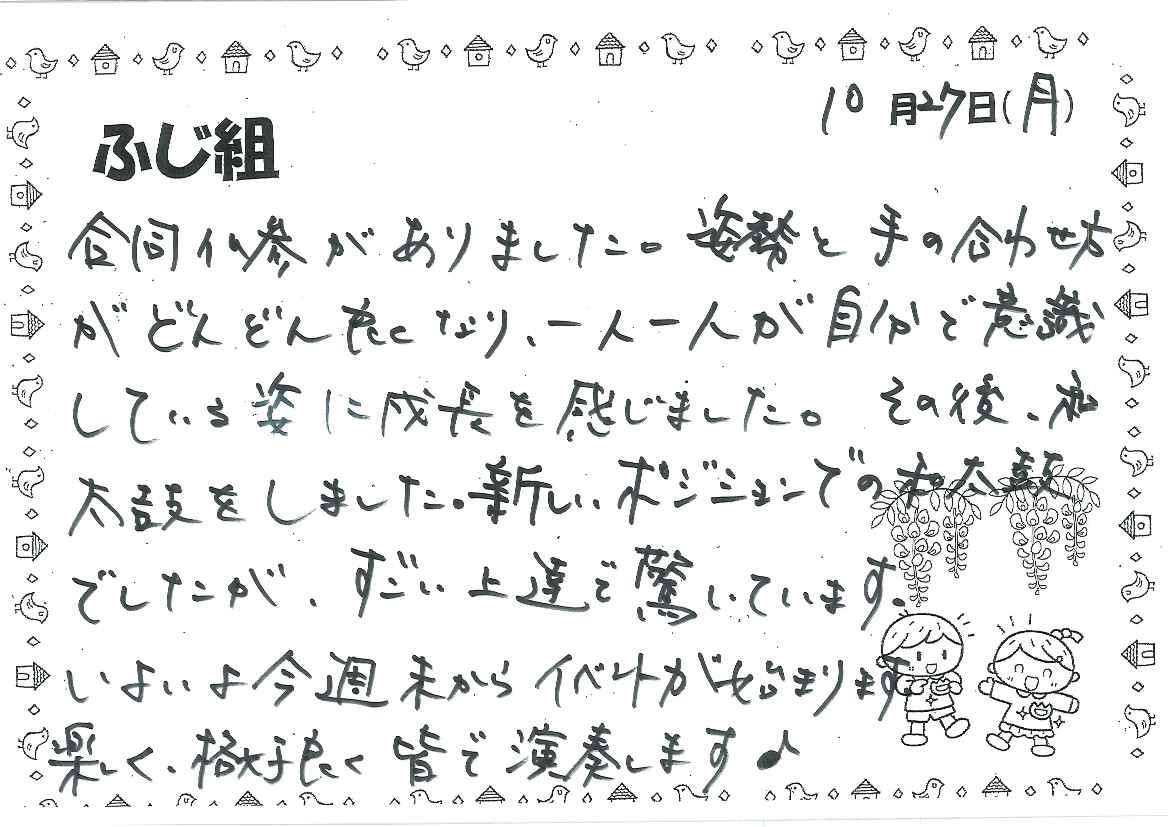 10月27日(月)
ふじ組
合同礼参がありました。姿勢と手の合わせ方
がどんどん良くなり、一人一人が自分で意識
している姿に成長を感じました。その後、和
太鼓をしました。新しいポジションでの和太鼓
でしたが、すごい上達で驚いています。
いよいよ今週末からイベントが始まります
楽しく、格好良く皆で演奏します♪